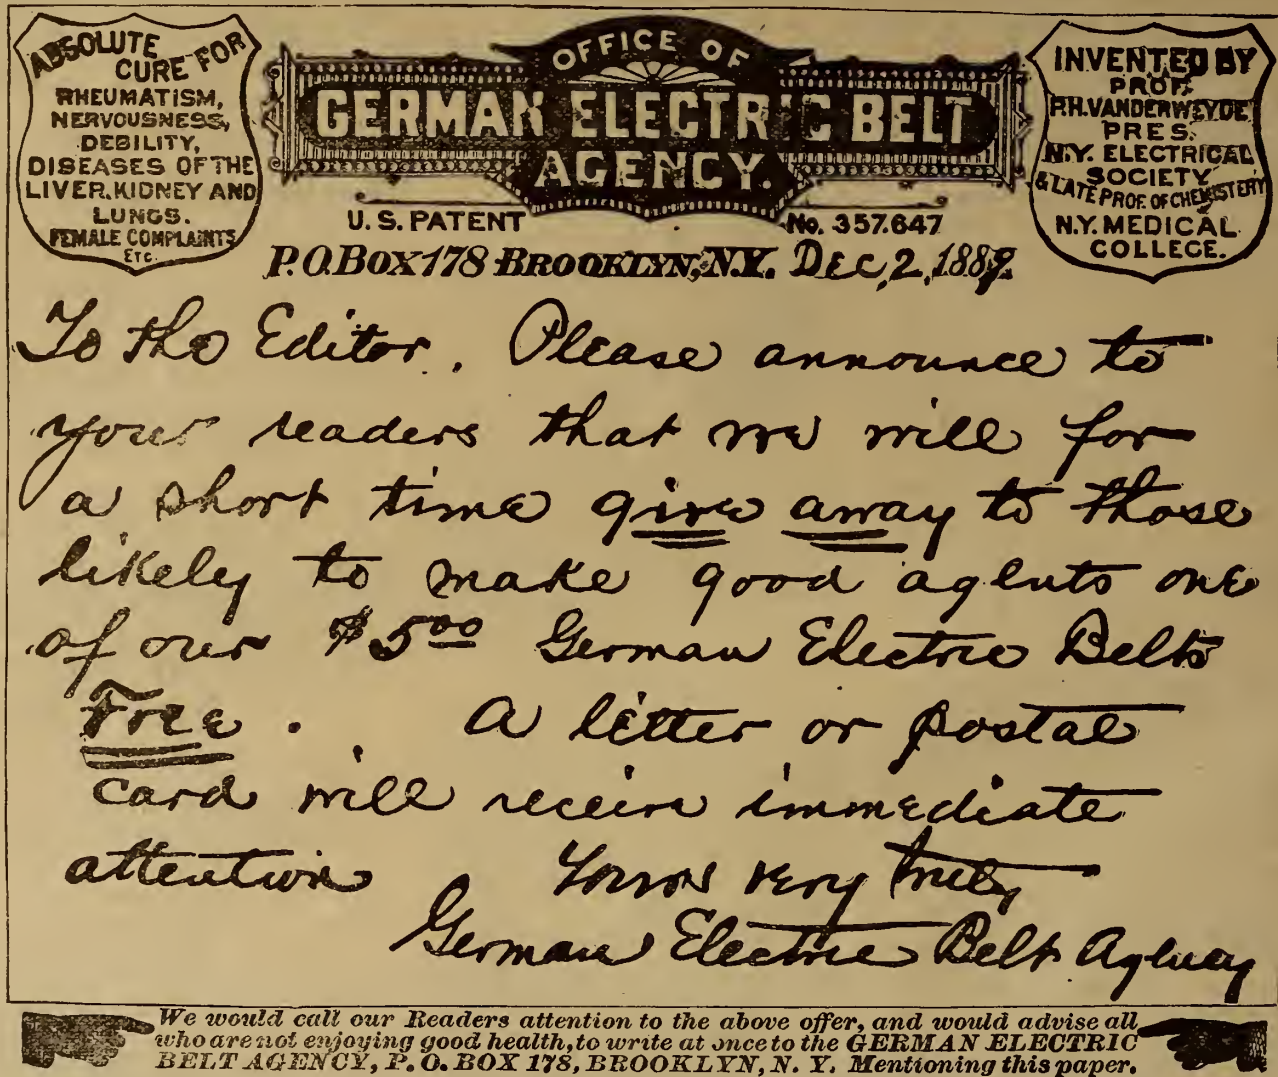 ABSOLUTE
CURE FOR
RHEUMATISM,
NERVOUSNESS,
DEBILITY,
DISEASES OF THE
LIVER, KIDNEY AND
LUNGS.
FEMALE COMPLAINTS
ETC.
OFFICE OF
GERMAN ELECTRIC BELT
AGENCY.
U.S. PATENT No. 357.647
INVENTED BY
PROF.
P.H. VANDERWEYDE
PRES.
N.Y. ELECTRICAL
SOCIETY
& LATE PROF. OF CHEMISTERY
N.Y. MEDICAL
COLLEGE.
P.O. BOX 178 BROOKLYN, N.Y. Dec, 2, 1889.
To the Editor. Please announce to
your readers that we will for
a short time give away to those
likely to make good agents one
of our $5.00 German Electric Belts
Free. A letter or postal
card will receive immediate
attention Yours very truly
German Electric Belt Agency
We would call our Readers attention to the above offer, and would advise all
who are not enjoying good health, to write at once to the GERMAN ELECTRIC
BELT AGENCY, P. O. BOX 178, BROOKLYN, N. Y. Mentioning this paper.